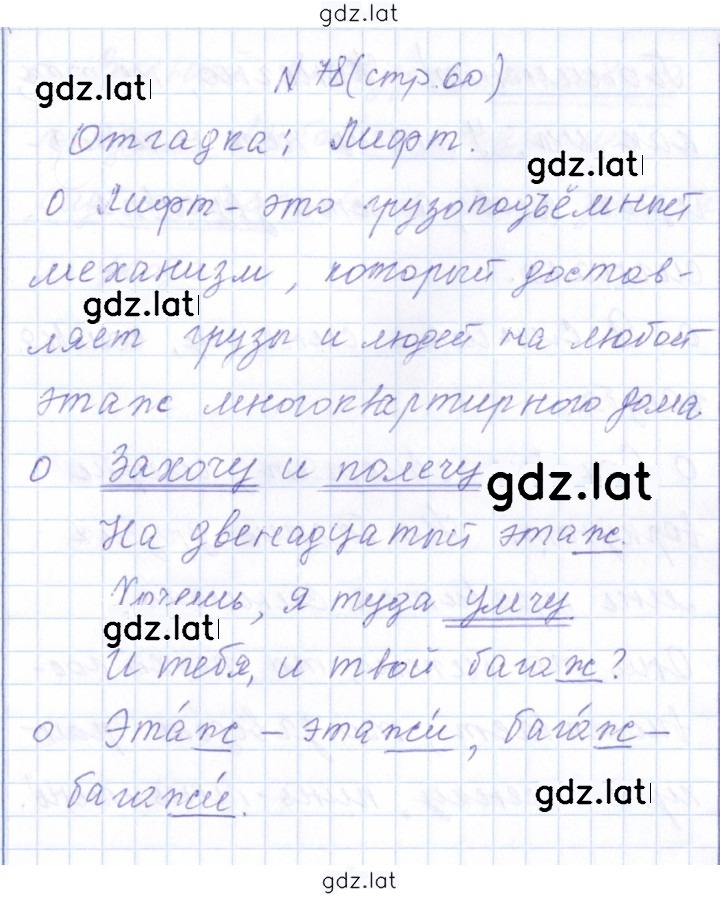 gdz.lat
N 78 (стр. 60)
gdz.lat
Отгадка: Лифт.
gdz.lat
О Лифт - это грузоподъёмный
механизм, который достав-
gdz.lat
ляет грузы и людей на любой
этаж многоквартирного дома
О Захочу и полечу
gdz.lat
На двенадцатый этаж.
Хочешь, я туда умчу
gdz.lat
И тебя, и твой багаж?
О Эта́ж - этажи́, бага́ж -
багажи́.
gdz.lat
gdz.lat